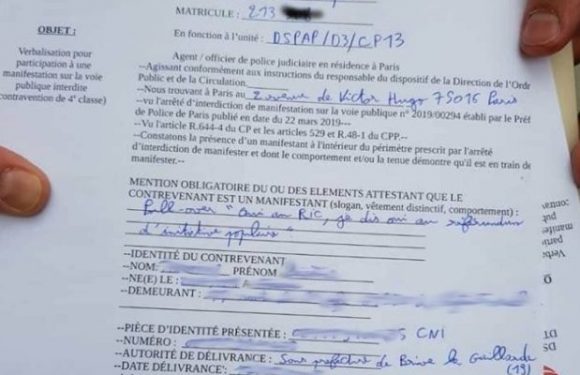 MATRICULE : 213
OBJET :
En fonction à l'unité : DSPAP/D3/CP13
Verbalisation pour
participation à une
manifestation sur la voie
publique interdite
contravention de 4e classe)
Agent / officier de police judiciaire en résidence à Paris
--Agissant conformément aux instructions du responsable du dispositif de la Direction de l'Ordr
Public et de la Circulation
--Nous trouvant à Paris au 2 avenue de Victor Hugo 75016 Paris
--vu l'arrêté d'interdiction de manifestation sur la voie publique n° 2019/00294 établi par le Préf
de Police de Paris publié en date du 22 mars 2019---
--Vu l'article R.644-4 du CP et les articles 529 et R.48-1 du CPP.--
--Constatons la présence d'un manifestant à l'intérieur du périmètre prescrit par l'arrêté
d'interdiction de manifester et dont le comportement et/ou la tenue démontre qu'il est en train de
manifester.---
MENTION OBLIGATOIRE DU OU DES ELEMENTS ATTESTANT QUE LE
CONTREVENANT EST UN MANIFESTANT (slogan, vêtement distinctif, comportement) :
Pull-over "Oui au RIC, je dis oui au référendum
d'initiative populaire"
--IDENTITÉ DU CONTREVENANT
--NOM: PRÉNOM
--NE(E) LE :
--DEMEURANT :
--PIÈCE D'IDENTITÉ PRÉSENTÉE : CNI
--NUMÉRO :
--AUTORITÉ DE DÉLIVRANCE : Sous préfecture de Brive la Gaillarde
--DATE DÉLIVRANCE: (19)